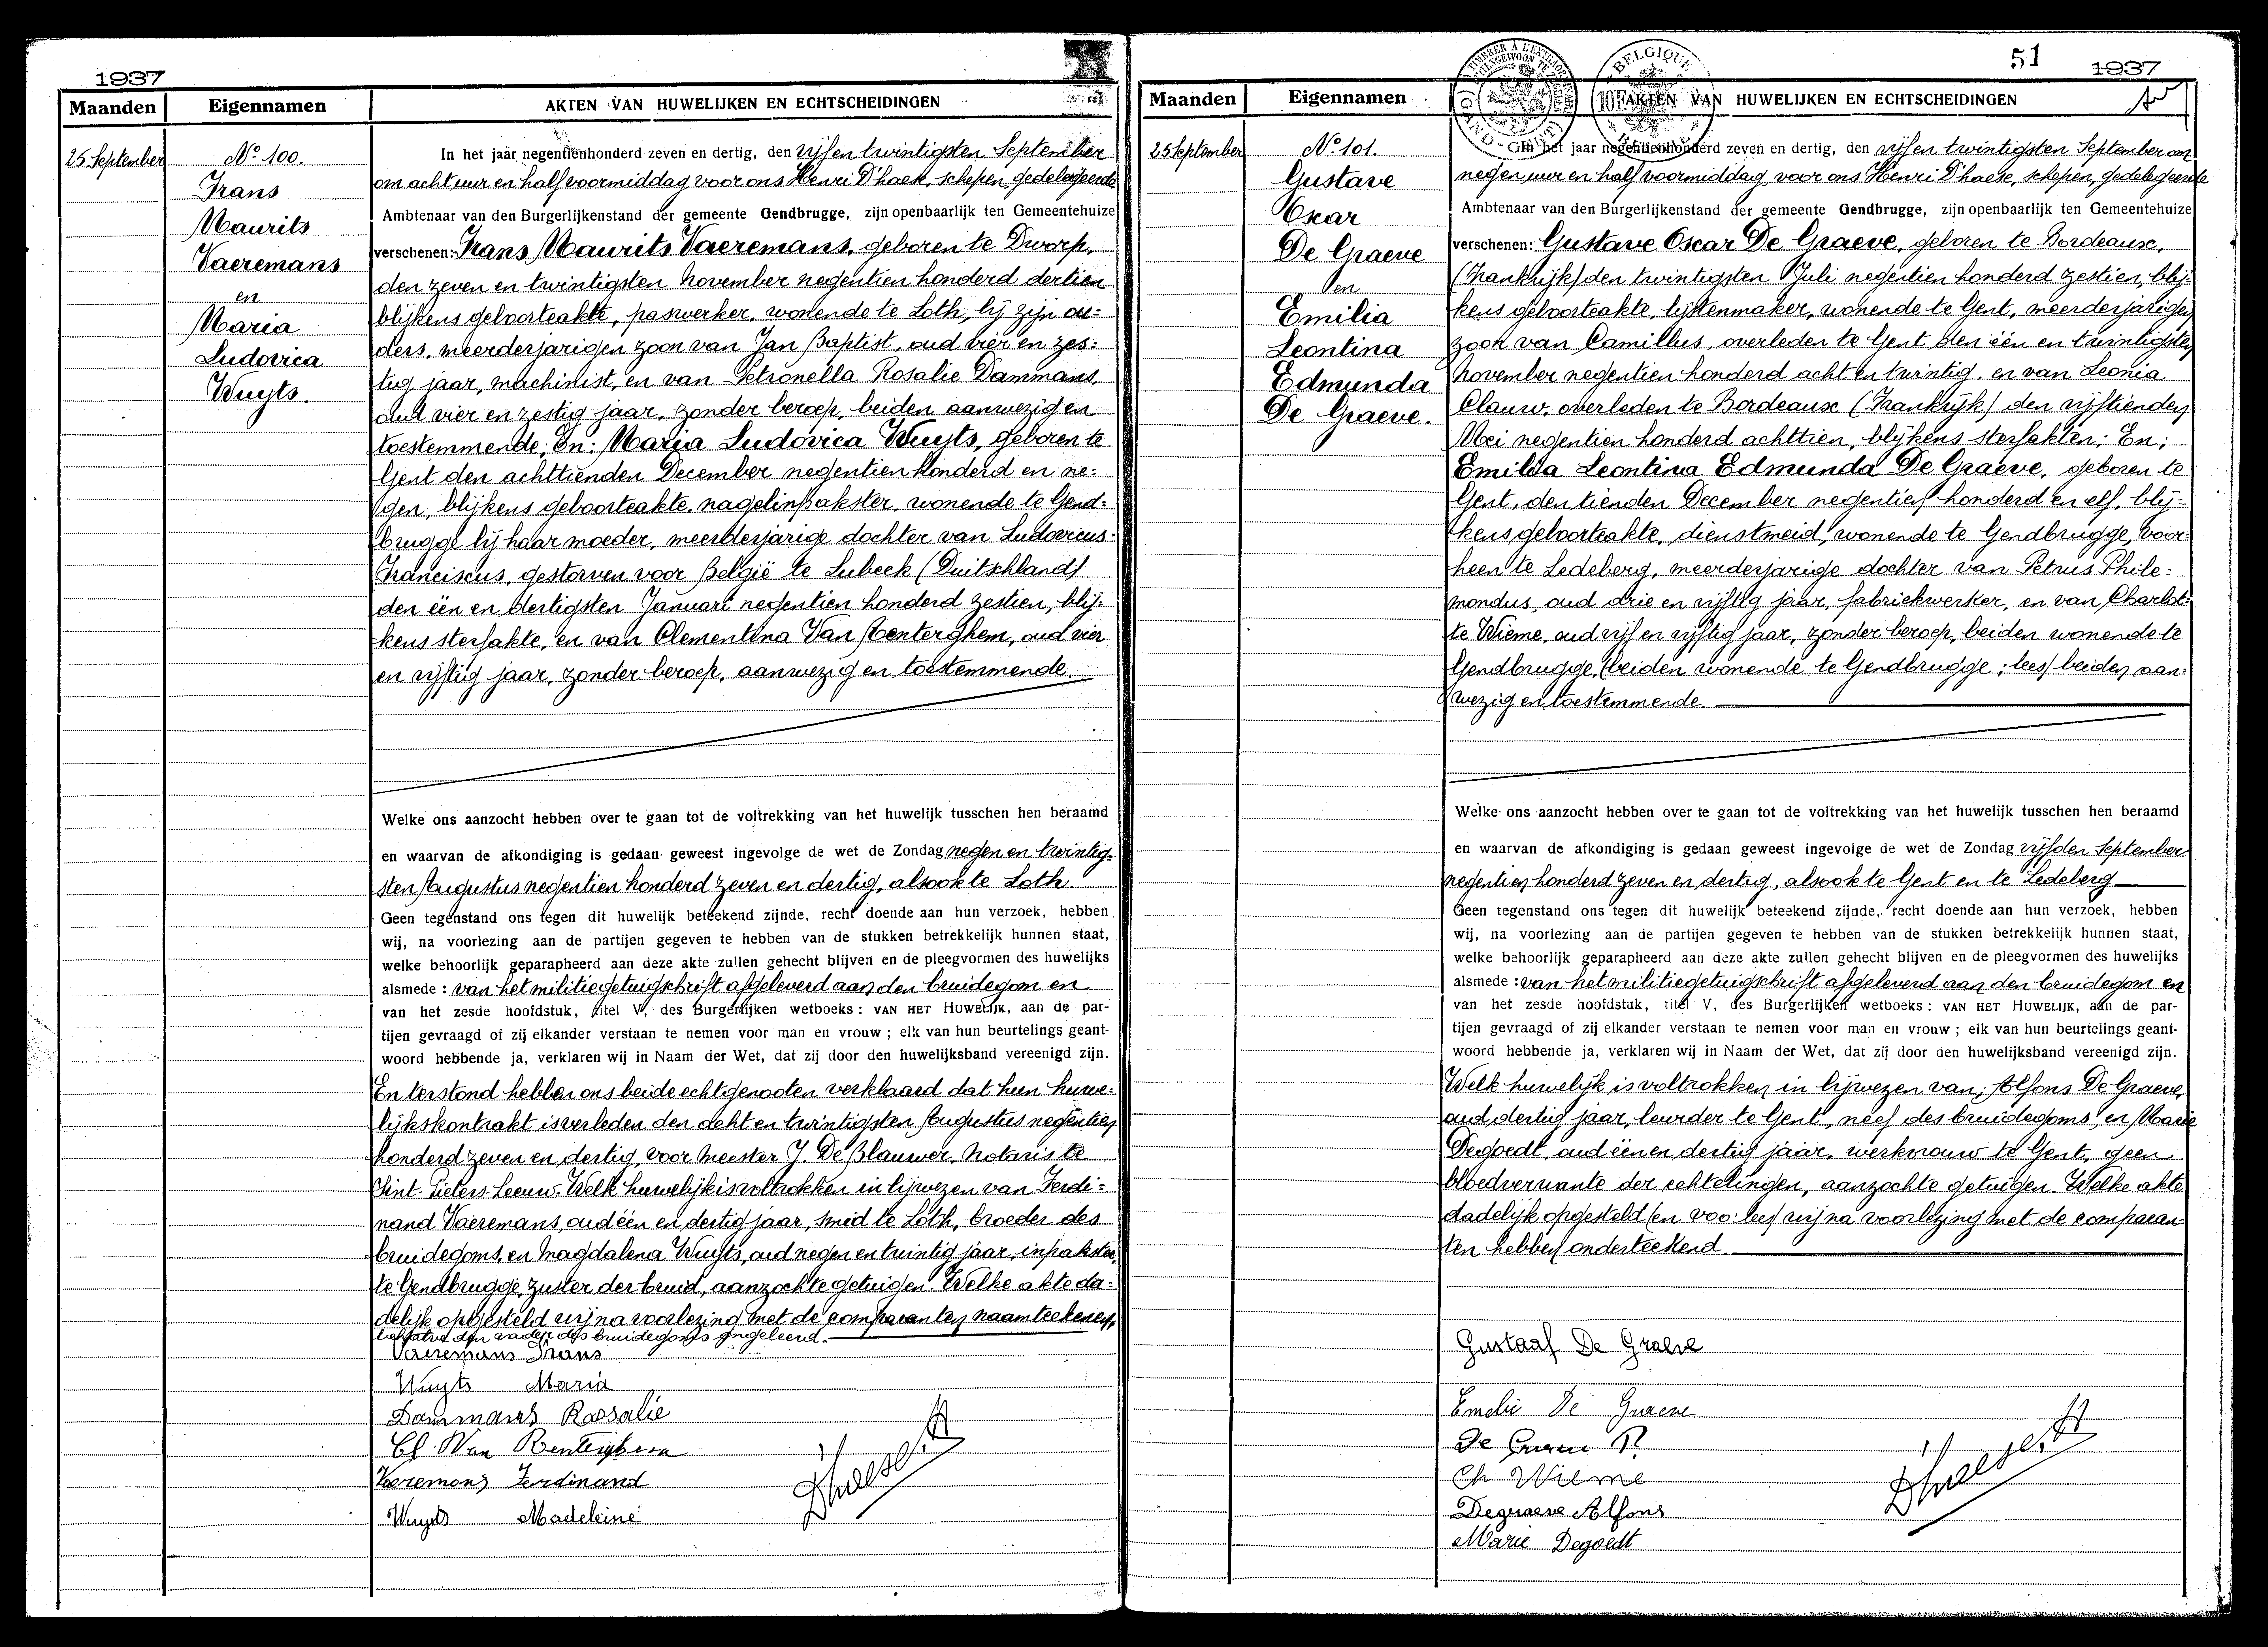 1937
Maanden Eigennamen AKTEN VAN HUWELIJKEN EN ECHTSCHEIDINGEN
25 September
No 100.
Frans
Maurits
Vaeremans
en
Maria
Ludovica
Wuyts.
In het jaar negentienhonderd zeven en dertig, den vijf en twintigsten September
om acht uur en half voormiddag voor ons Henri D'haese, schepen, gedelegeerde
Ambtenaar van den Burgerlijkenstand der gemeente Gendbrugge, zijn openbaarlijk ten Gemeentehuize
verschenen: Frans Maurits Vaeremans, geboren te Dworp,
den zeven en twintigsten November negentien honderd dertien
blijkens geboorteakte, paswerker, wonende te Loth, bij zijn ou=
ders, meerderjarigen zoon van Jan Baptist, oud vier en zes=
tig jaar, machinist, en van Petronella Rosalie Dammans,
oud vier en zestig jaar, zonder beroep, beiden aanwezig en
toestemmende; En: Maria Ludovica Wuyts, geboren te
Gent den achttienden December negentien honderd en ne=
gen, blijkens geboorteakte, nagelinpakster, wonende te Gend=
brugge bij haar moeder, meerderjarige dochter van Ludovicus=
Franciscus, gestorven voor België te Lubeck (Duitschland)
den één en dertigsten Januari negentien honderd zestien, blij=
kens sterfakte, en van Clementina Van Renterghem, oud vier
en vijftig jaar, zonder beroep, aanwezig en toestemmende.
Welke ons aanzocht hebben over te gaan tot de voltrekking van het huwelijk tusschen hen beraamd
en waarvan de afkondiging is gedaan geweest ingevolge de wet de Zondag negen en twintig=
sten Augustus negentien honderd zeven en dertig, alsook te Loth.
Geen tegenstand ons tegen dit huwelijk beteekend zijnde, recht doende aan hun verzoek, hebben
wij, na voorlezing aan de partijen gegeven te hebben van de stukken betrekkelijk hunnen staat,
welke behoorlijk geparapheerd aan deze akte zullen gehecht blijven en de pleegvormen des huwelijks
alsmede: van het militiegetuigschrift afgeleverd aan den bruidegom en
van het zesde hoofdstuk, titel V, des Burgerlijken wetboeks: VAN HET HUWELIJK, aan de par-
tijen gevraagd of zij elkander verstaan te nemen voor man en vrouw; elk van hun beurtelings geant-
woord hebbende ja, verklaren wij in Naam der Wet, dat zij door den huwelijksband vereenigd zijn.
En terstond hebben ons beide echtgenooten verklaard dat hun huwe=
lijkskontrakt is verleden den acht en twintigsten Augustus negentien
honderd zeven en dertig, voor meester J. De Blauwer, Notaris te
Sint Pieters Leeuw. Welk huwelijk is voltrokken in bijwezen van Ferdi=
nand Vaeremans, oud één en dertig jaar, smid te Loth, broeder des
bruidegoms, en Magdalena Wuyts, oud negen en twintig jaar, inpakster,
te Gendbrugge, zuster der bruid, aanzochte getuigen. Welke akte da=
delijk opgesteld wij na voorlezing met de comparanten naamteekenen,
behalve den vader des bruidegoms ongeleerd.
Vaeremans Frans
Wuyts Maria
Dammans Rosalie
Cl. Van Renterghem
Vaeremans Ferdinand
Wuyts Madeleine
D'haese H
51
1937
Maanden Eigennamen AKTEN VAN HUWELIJKEN EN ECHTSCHEIDINGEN
BELGIQUE
25 September
No 101.
Gustave
Oscar
De Graeve
en
Emilia
Leontina
Edmunda
De Graeve.
In het jaar negentienhonderd zeven en dertig, den vijf en twintigsten September om
negen uur en half voormiddag, voor ons Henri D'haese, schepen, gedelegeerde
Ambtenaar van den Burgerlijkenstand der gemeente Gendbrugge, zijn openbaarlijk ten Gemeentehuize
verschenen: Gustave Oscar De Graeve, geboren te Bordeaux,
(Frankrijk) den twintigsten Juli negentien honderd zestien, blij=
kens geboorteakte, lijstenmaker, wonende te Gent, meerderjarigen
zoon van Camillus, overleden te Gent den één en twintigsten
November negentien honderd acht en twintig, en van Leonia
Clauw, overleden te Bordeaux (Frankrijk) den vijftienden
Mei negentien honderd achttien, blijkens sterfakten; En;
Emilia Leontina Edmunda De Graeve, geboren te
Gent, den tienden December negentien honderd en elf, blij=
kens geboorteakte, dienstmeid, wonende te Gendbrugge, voor=
heen te Ledeberg, meerderjarige dochter van Petrus Phile=
mondus, oud drie en vijftig jaar, fabriekwerker, en van Charlot=
te Wieme, oud vijf en vijftig jaar, zonder beroep, beiden wonende te
Gendbrugge, (beiden wonende te Gendbrugge; lees) beiden aan=
wezig en toestemmende.
Welke ons aanzocht hebben over te gaan tot de voltrekking van het huwelijk tusschen hen beraamd
en waarvan de afkondiging is gedaan geweest ingevolge de wet de Zondag vijfden September
negentien honderd zeven en dertig, alsook te Gent en te Ledeberg
Geen tegenstand ons tegen dit huwelijk beteekend zijnde, recht doende aan hun verzoek, hebben
wij, na voorlezing aan de partijen gegeven te hebben van de stukken betrekkelijk hunnen staat,
welke behoorlijk geparapheerd aan deze akte zullen gehecht blijven en de pleegvormen des huwelijks
alsmede: van het militiegetuigschrift afgeleverd aan den bruidegom en
van het zesde hoofdstuk, titel V, des Burgerlijken wetboeks: VAN HET HUWELIJK, aan de par-
tijen gevraagd of zij elkander verstaan te nemen voor man en vrouw; elk van hun beurtelings geant-
woord hebbende ja, verklaren wij in Naam der Wet, dat zij door den huwelijksband vereenigd zijn.
Welk huwelijk is voltrokken in bijwezen van; Alfons De Graeve,
oud dertig jaar, leurder te Gent, neef des bruidegoms, en Marie
Degoedt, oud één en dertig jaar, werkvrouw te Gent, geen
bloedverwante der echtelingen, aanzochte getuigen. Welke akte
dadelijk opgesteld (en voo: lees) wij na voorlezing met de comparan
ten hebben onderteekend.
Gustaaf De Graeve
Emelie De Graeve
De Graeve P.
Ch Wieme
Degraeve Alfons
Marie Degoedt
D'haese H